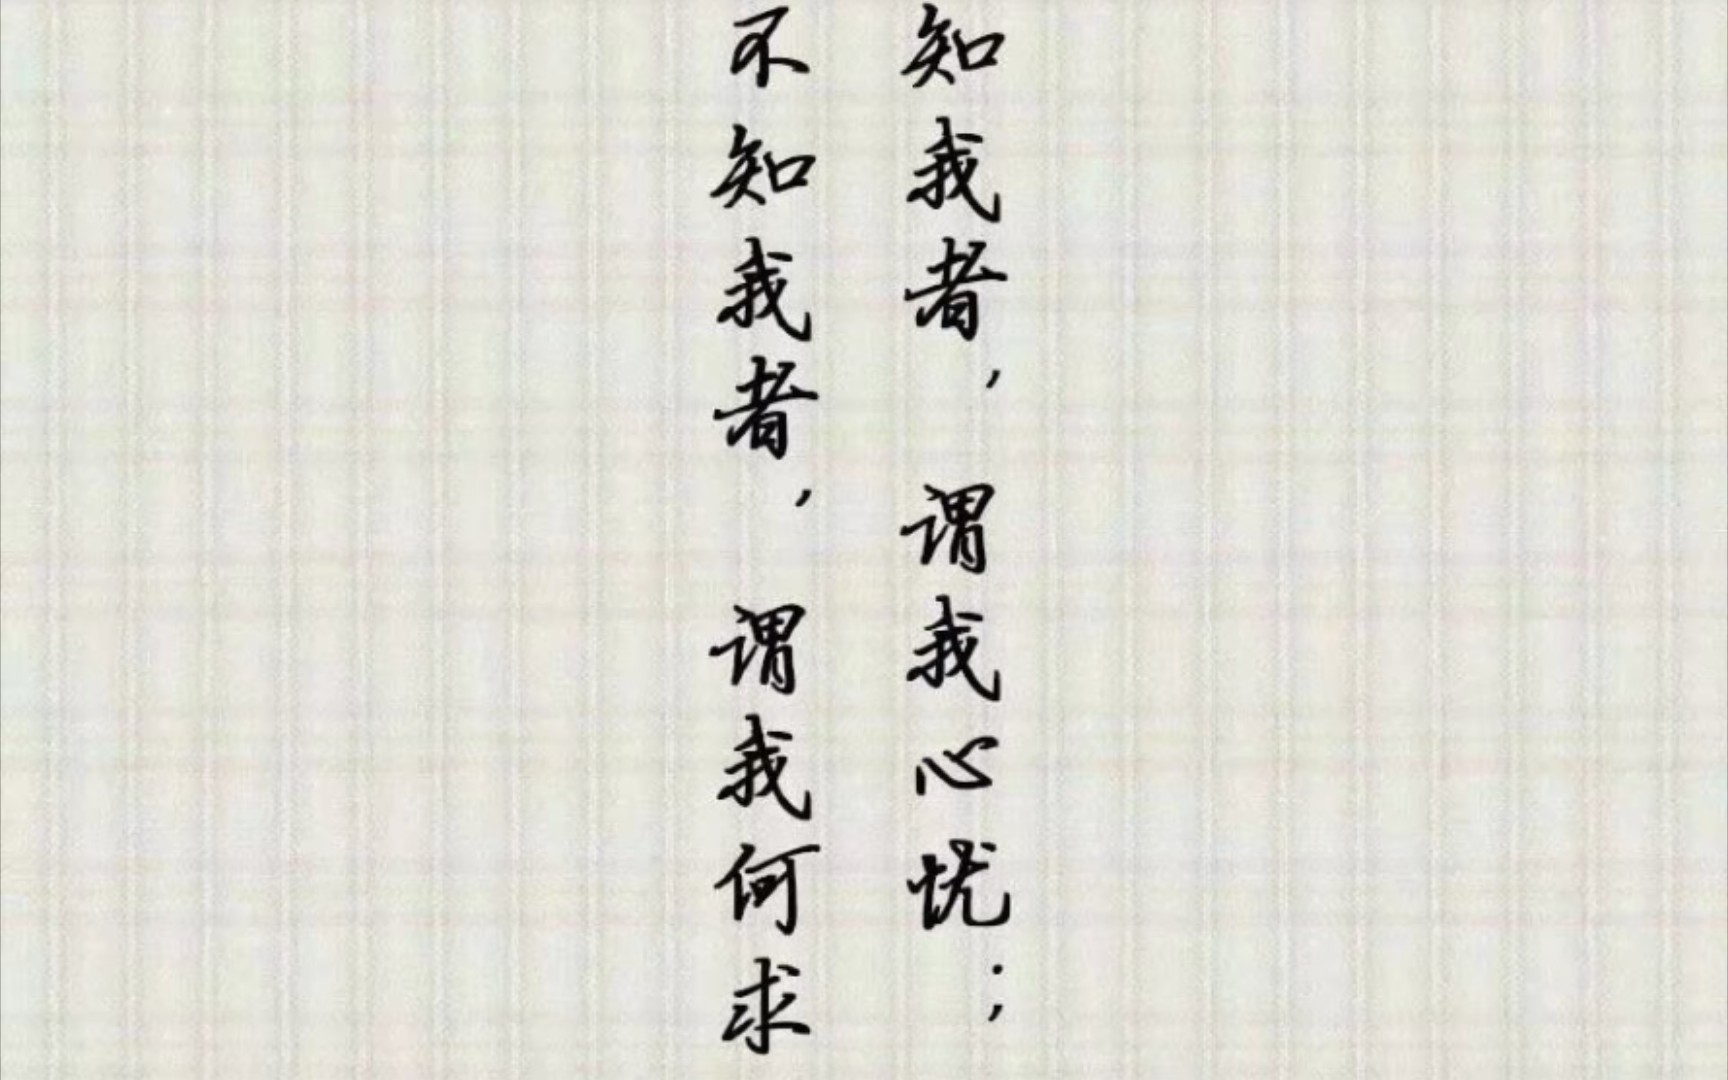 知我者，谓我心忧；
不知我者，谓我何求